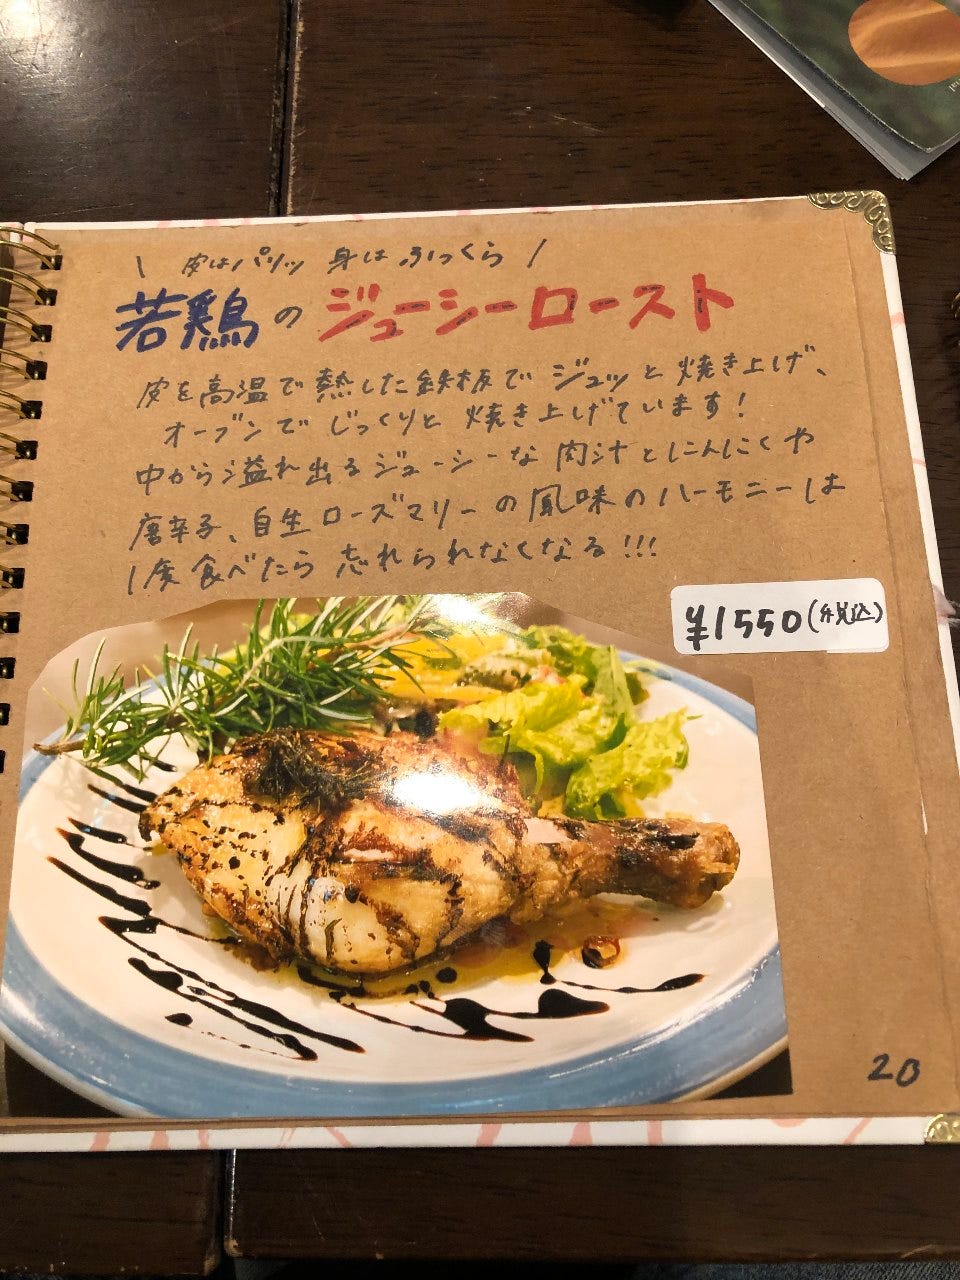 \ 皮はパリッ 身はふっくら /
若鶏のジューシーロースト
皮を高温で熱した鉄板でジュッと焼き上げ、
オーブンでじっくりと焼き上げています!
中から溢れ出るジューシーな肉汁とにんにくや
唐辛子、自生ローズマリーの風味のハーモニーは
1度食べたら忘れられなくなる!!!
¥1550(税込)
20